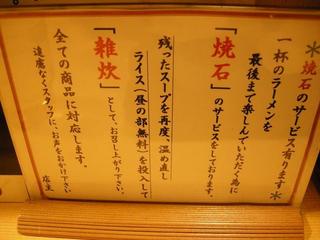 ＊焼石のサービス有ります＊
一杯のラーメンを
最後まで楽しんでいただく為に
「焼石」のサービスをしております。
残ったスープを再度、温め直し
ライス(昼の部無料)を投入して
「雑炊」として、お召し上がり下さい。
全ての商品に対応します。
遠慮なくスタッフに、お声をおかけ下さい
店主